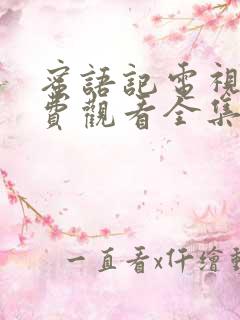 蜜語記電視
費觀看全集
一直看x仟繪動